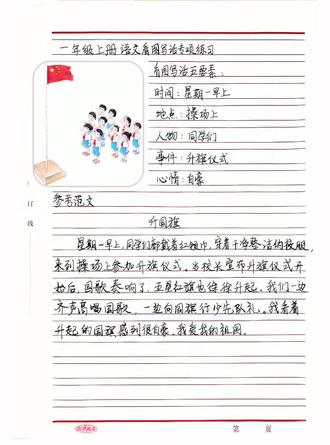 一年级上册语文看图写话专项练习
看图写话五要素：
时间：星期一早上
地点：操场上
人物：同学们
事件：升旗仪式
心情：自豪
参考范文
升国旗
星期一早上，同学们都戴着红领巾，穿着干净整洁的校服，
来到操场上参加升旗仪式。当校长宣布升旗仪式开
始后，国歌奏响了，五星红旗也徐徐升起。我们一边
齐声高唱国歌，一边向国旗行少先队礼。我看着
升起的国旗感到很自豪。我爱我的祖国。
订
线
第 页